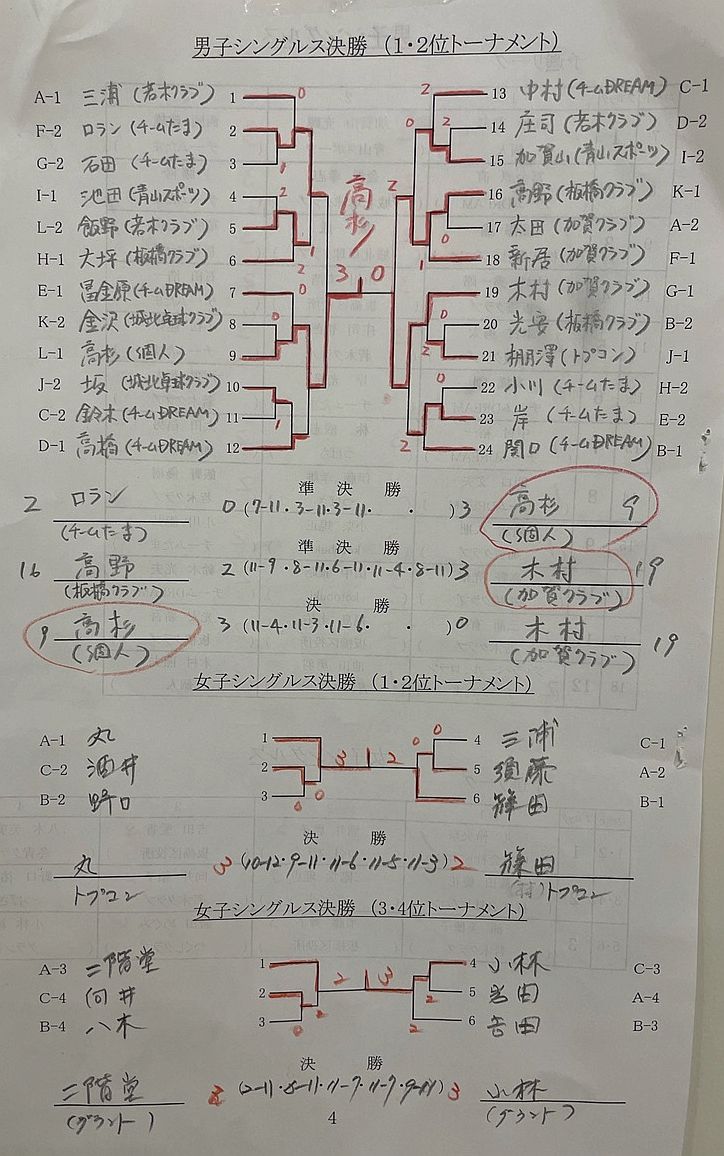 男子シングルス決勝 (1・2位トーナメント)
A-1 三浦 (若木クラブ) 1 0 2 13 中村 (チームDREAM) C-1
F-2 ロラン (チームたま) 2 0 2 14 庄司 (若木クラブ) D-2
G-2 石田 (チームたま) 3 1 15 加賀山 (青山スポーツ) I-2
I-1 池田 (青山スポーツ) 4 2 高杉 2 16 高野 (板橋クラブ) K-1
L-2 飯野 (若木クラブ) 5 17 太田 (加賀クラブ) A-2
H-1 大坪 (板橋クラブ) 6 1 0 18 新居 (加賀クラブ) F-1
2 3 0 1
E-1 冨金原 (チームDREAM) 7 0 19 木村 (加賀クラブ) G-1
K-2 金沢 (城北卓球クラブ) 8 0 0 20 光安 (板橋クラブ) B-2
L-1 高杉 (個人) 9 2 21 棚澤 (トプコン) J-1
J-2 坂 (城北卓球クラブ) 10 0 22 小川 (チームたま) H-2
C-2 鈴木 (チームDREAM) 11 1 23 岸 (チームたま) E-2
D-1 高橋 (チームDREAM) 12 2 24 関口 (チームDREAM) B-1
準 決 勝
2 ロラン 0 (7-11・3-11・3-11・ ・ ) 3 高杉 9
(チームたま) (個人)
準 決 勝
16 高野 2 (11-9・8-11・6-11・11-4・8-11) 3 木村 19
(板橋クラブ) (加賀クラブ)
決 勝
9 高杉 3 (11-4・11-3・11-6・ ・ ) 0 木村 19
(個人) (加賀クラブ)
女子シングルス決勝 (1・2位トーナメント)
A-1 丸 1 0 4 三浦 C-1
C-2 酒井 2 3 2 0 5 須藤 A-2
B-2 野口 3 0 0 6 篠田 B-1
決 勝
丸 3 (10-12・9-11・11-6・11-5・11-3) 2 篠田
トプコン (村) トプコン
女子シングルス決勝 (3・4位トーナメント)
A-3 二階堂 1 4 小林 C-3
C-4 向井 2 2 3 5 岩田 A-4
B-4 八木 3 0 2 2 6 吉田 B-3
決 勝
二階堂 2 (2-11・8-11・11-7・11-7・9-11) 3 小林
(グラント) (グラント)
4